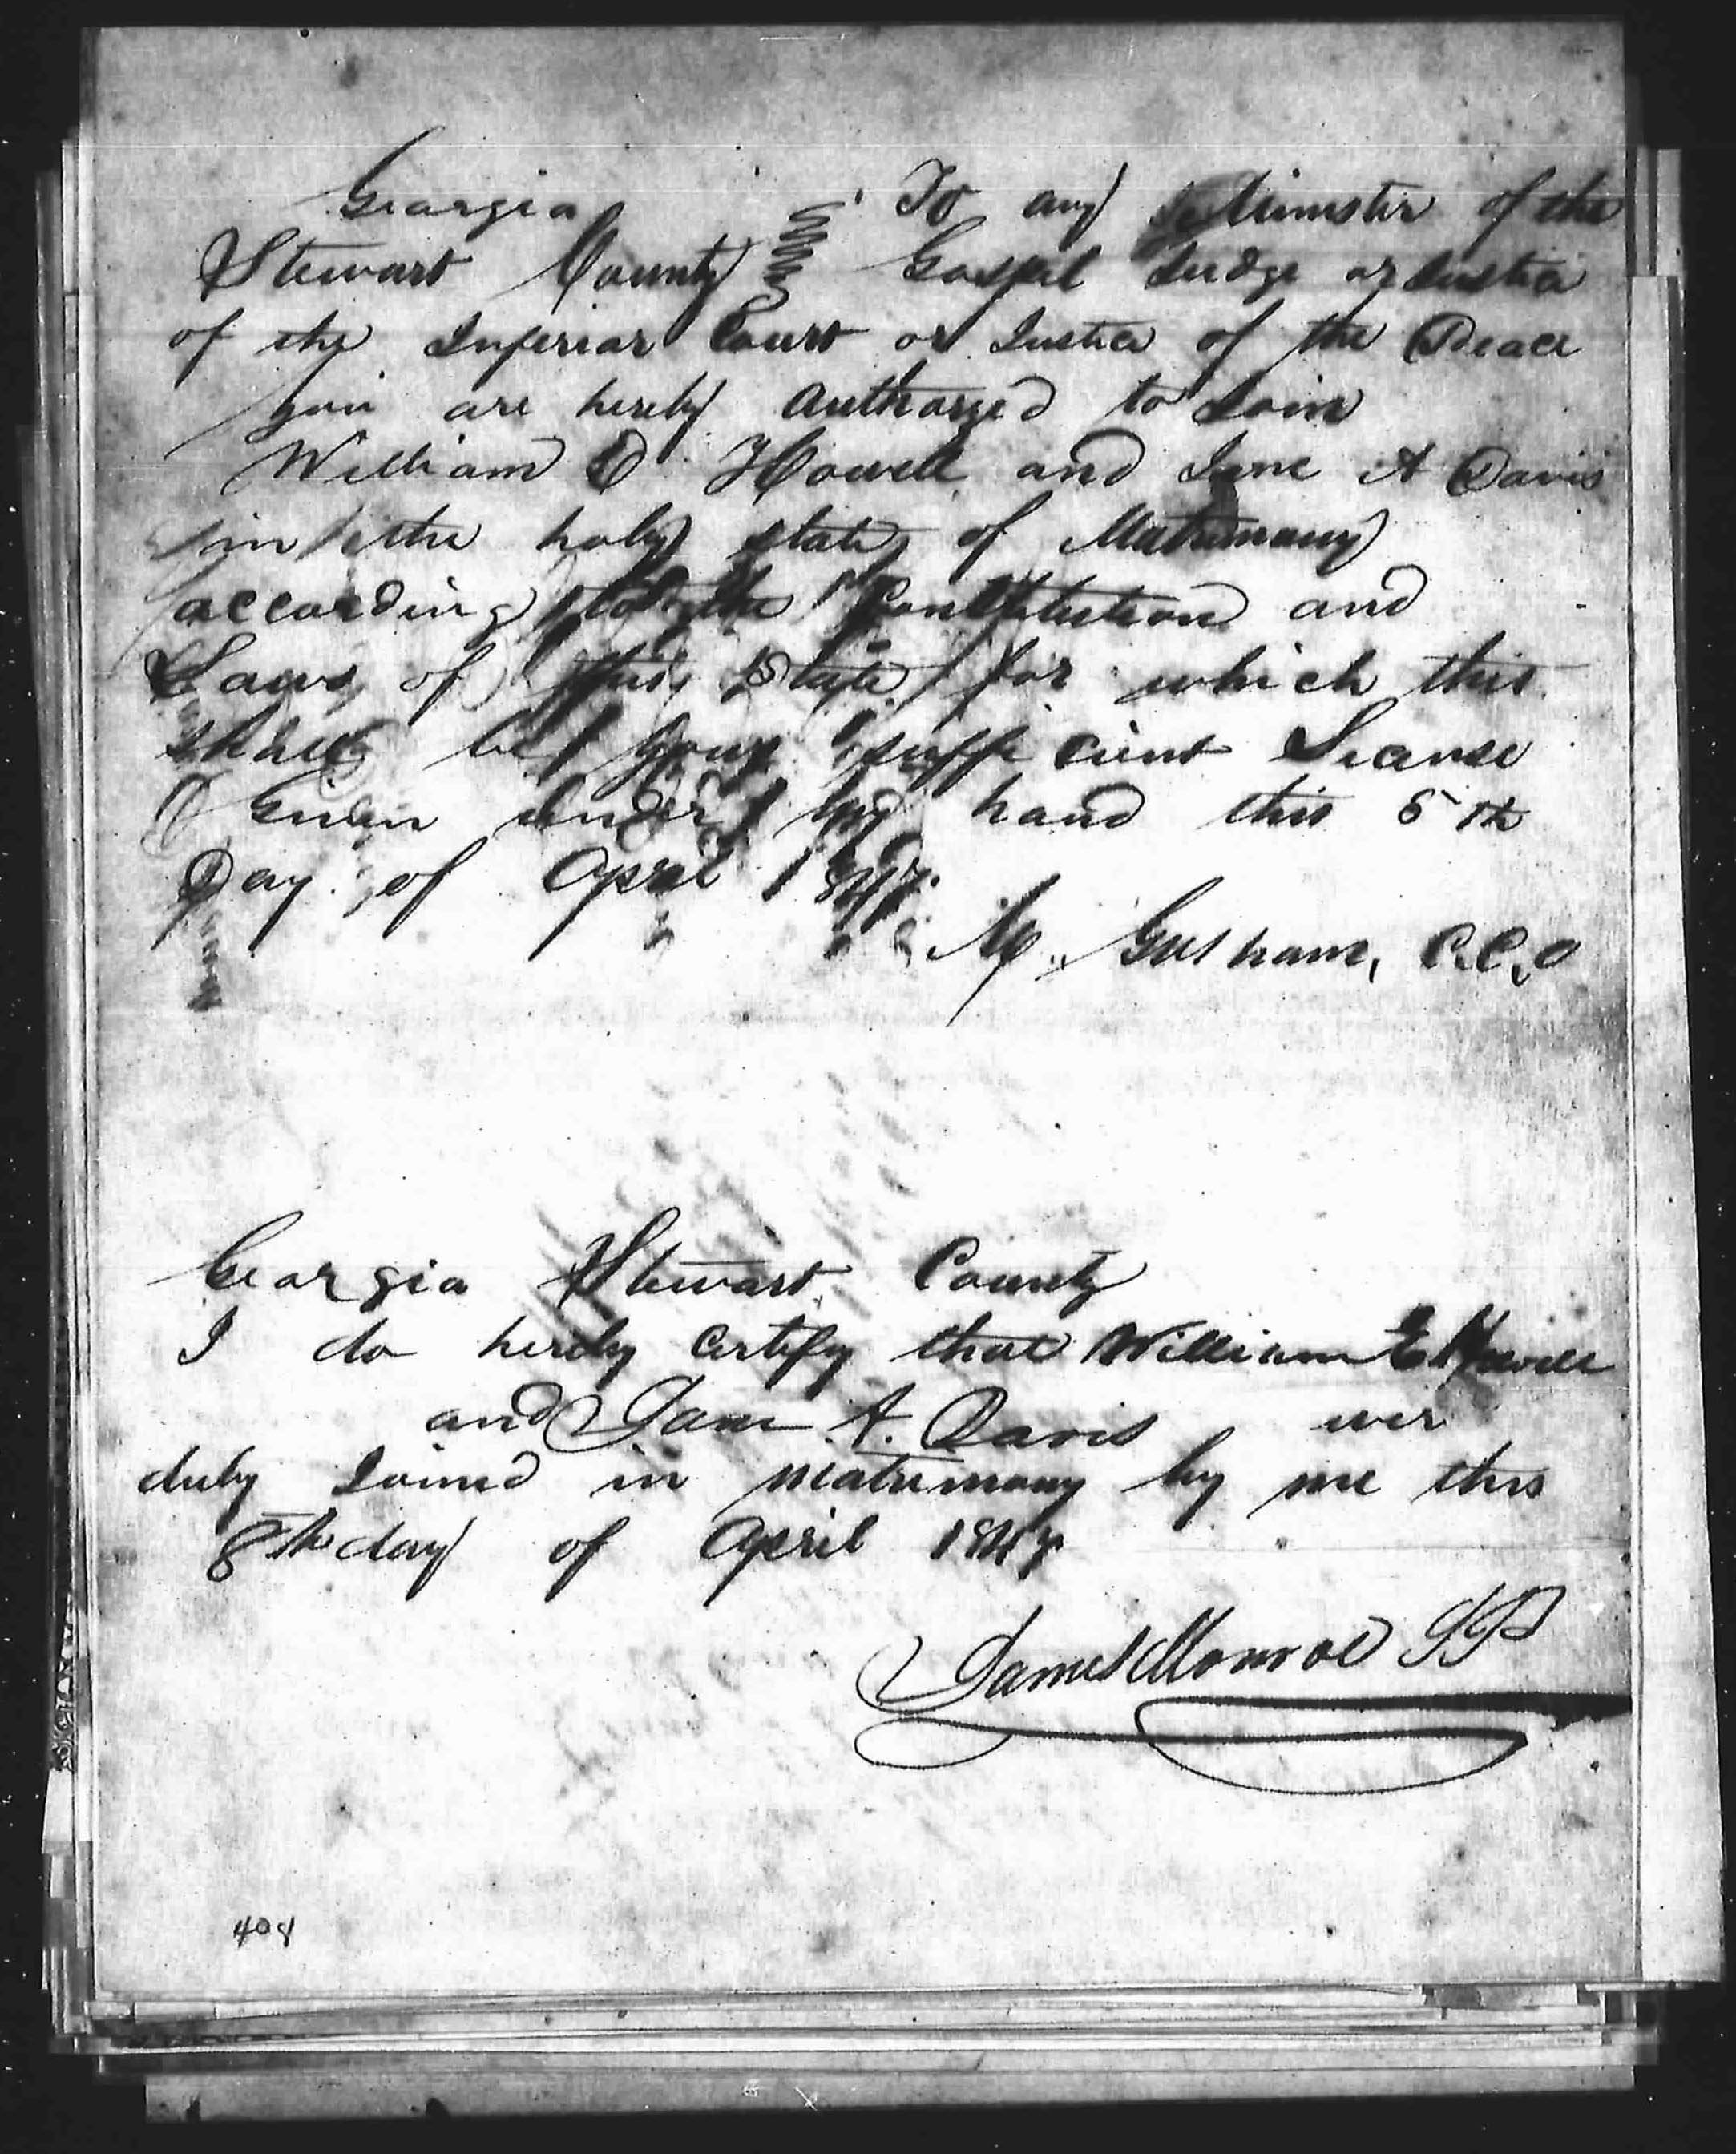 Georgia To any Minister of the
Stewart County Gospel Judge or Justice
of the Inferior Court or Justice of the Peace
you are hereby authorized to Join
William D Howell and Jane A Davis
in the holy state of Matrimony
according to the Constitution and
Laws of this State for which this
shall be your sufficient Licanse
Given under my hand this 5th
Day of April 1847
M. Gresham, C.C.O
Georgia Stewart County
I do hereby certify that William E Howell
and Jane A. Davis wer
duly Joined in matrimony by me this
8th day of April 1847
James Monroe JP
408